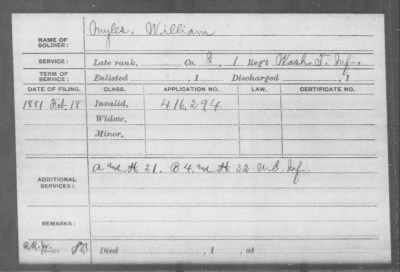 NAME OF SOLDIER: Myles, William
SERVICE: Late rank, Co. I, 1 Reg't Wash. T. Inf.
TERM OF SERVICE: Enlisted , 1 Discharged , 1
DATE OF FILING. CLASS. APPLICATION NO. LAW. CERTIFICATE NO.
1881. Feb. 18 Invalid, 416,294
Widow,
Minor,
ADDITIONAL SERVICES: A and H 21. B 4. and H 32 U.S. Inf.
REMARKS:
Died , 1 , at